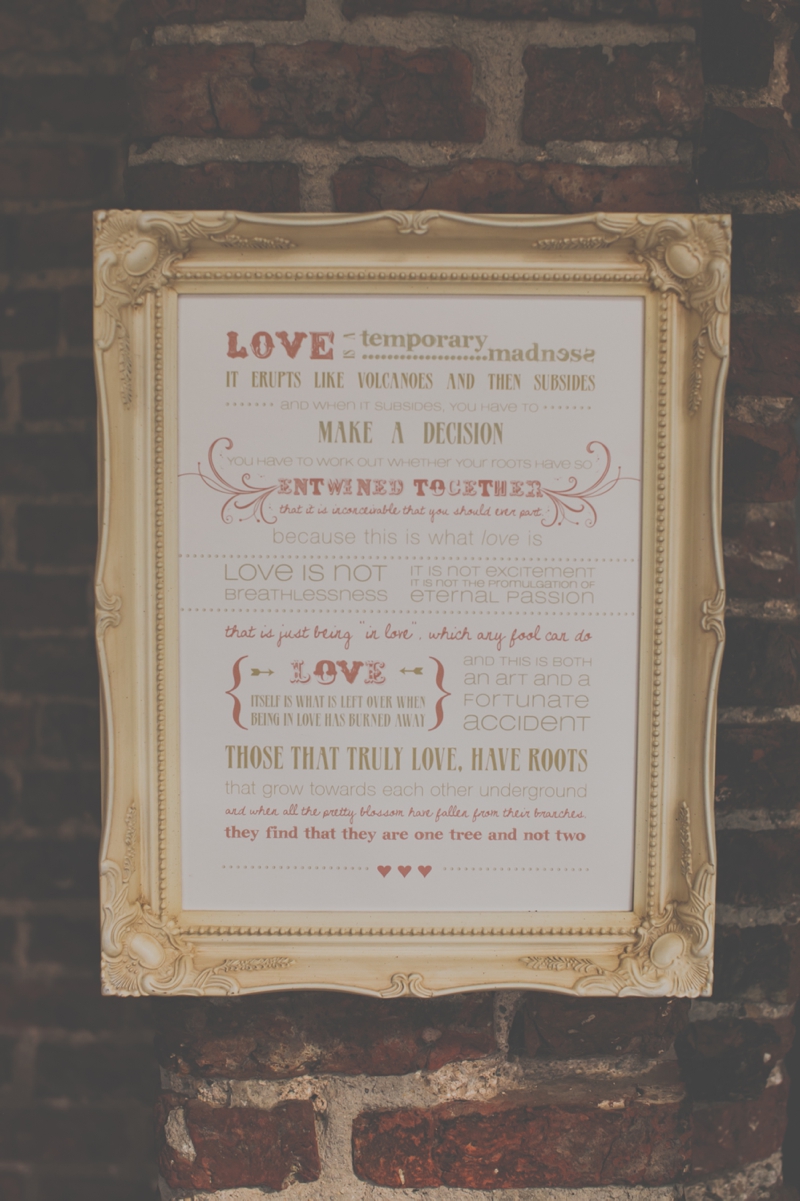 LOVE IS A temporary madness
IT ERUPTS LIKE VOLCANOES AND THEN SUBSIDES
and when it subsides, you have to
MAKE A DECISION
you have to work out whether your roots have so
ENTWINED TOGETHER
that it is inconceivable that you should ever part
because this is what love is
Love is not
breathlessness
it is not excitement
it is not the promulgation of
eternal passion
that is just being "in love", which any fool can do
LOVE
ITSELF IS WHAT IS LEFT OVER WHEN
BEING IN LOVE HAS BURNED AWAY
and this is both
an art and a
fortunate
accident
THOSE THAT TRULY LOVE, HAVE ROOTS
that grow towards each other underground
and when all the pretty blossom have fallen from their branches,
they find that they are one tree and not two